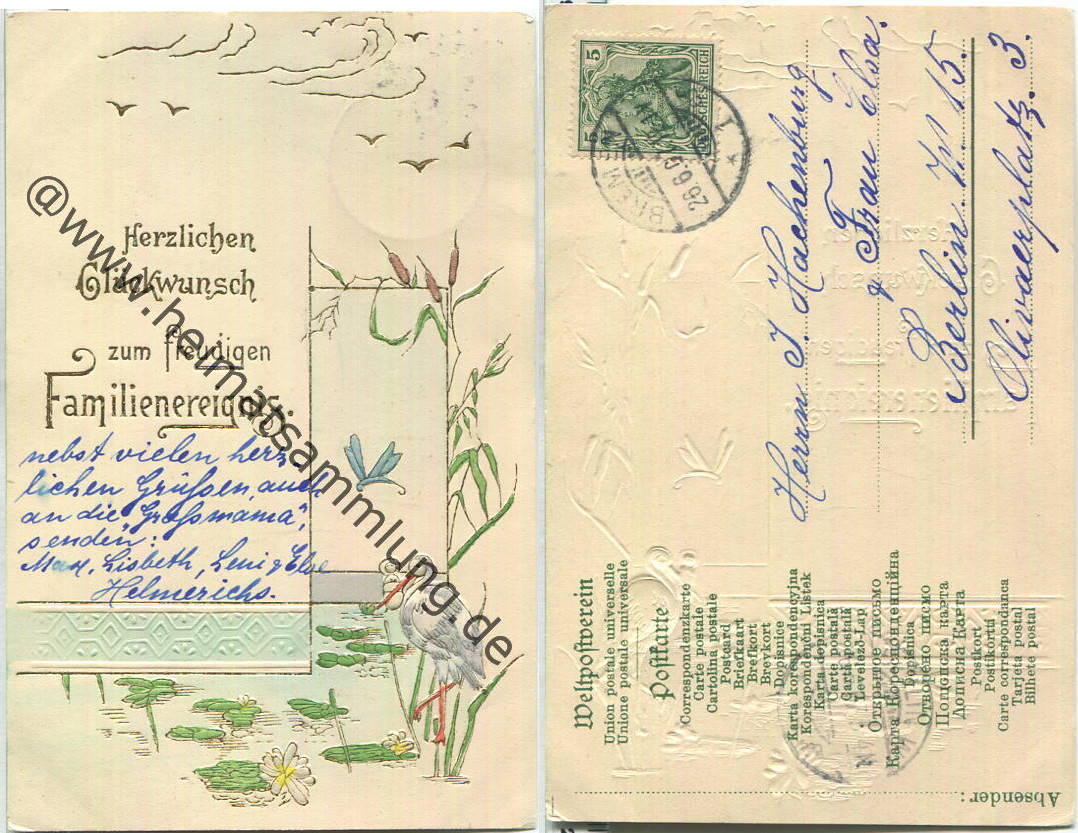 Herzlichen
Glückwunsch
zum freudigen
Familienereignis.
nebst vielen herz-
lichen Grüßen, auch
an die „Großmama",
senden:
Max, Lisbeth, Leni & Else
Helmerichs.
@www.heimatsammlung.de
5 5
DEUTSCHES REICH
BREMEN
26.6.0
1
Herrn J. Hachenburg
& Frau Elsa.
Berlin W 15.
Olivaerplatz. 3
Weltpostverein
Union postale universelle
Unione postale universale
Postkarte
Correspondenzkarte
Carte postale
Cartolina postale
Postcard
Briefkaart
Brefkort
Brevkort
Dopisnice
Karta korespondencyjna
Korespondenční Lístek
Karta dopisnica
Carte postală
Gartă postală
Levelező-Lap
Открытое письмо
Карта Кореспонденційна
Dopisnica
Отворено писмо
Пощенска карта
Дописна Карта
Postkort
Postikortti
Carte correspondance
Tarjeta postal
Bilhete postal
Absender: